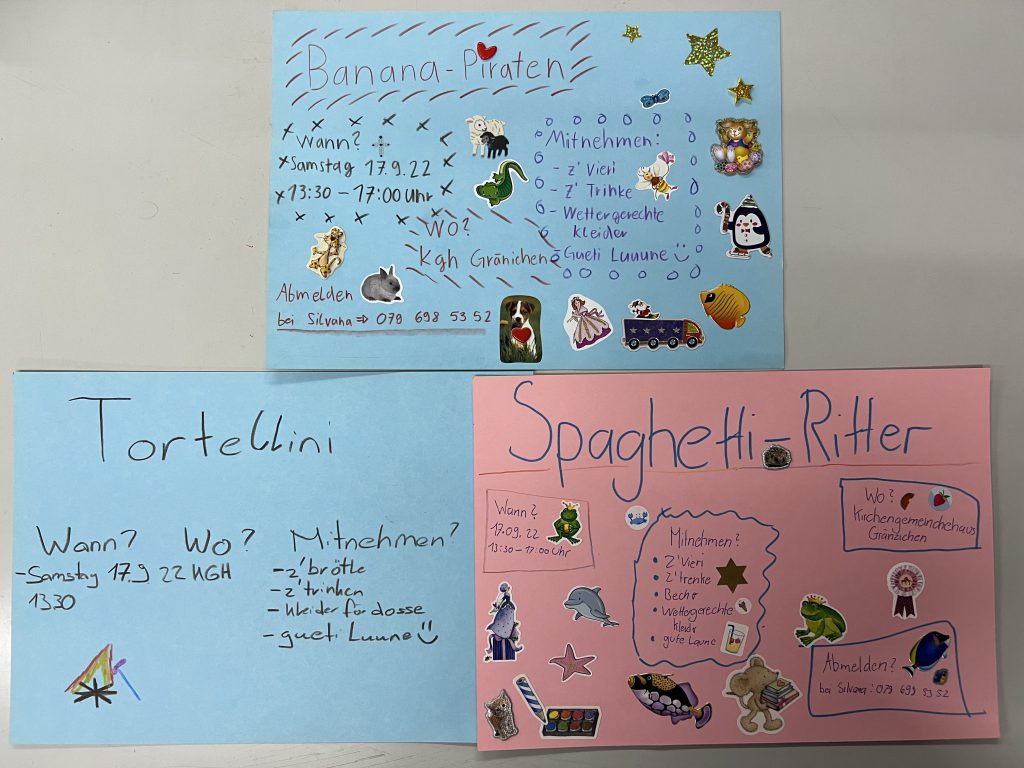 Banana-Piraten
Wann?
Samstag 17.9.22
13:30 – 17:00 Uhr
Wo?
Kgh Gränichen
Mitnehmen:
- z' Vieri
- z' Trinke
- Wettergerechte
kleider
- Gueti Luuune
Abmelden
bei Silvana ⇒ 079 698 53 52
Tortellini
Wann?
- Samstag 17.9 22
13.30
Wo?
KGH
Mitnehmen?
- z' brötle
- z' trinken
- kleider für dosse
- gueti Luune
Spaghetti-Ritter
Wann?
17.09.22
13:30 – 17:00 Uhr
Mitnehmen?
• Z'Vieri
• z'trenke
• Becher
• Wettergerechte
kleider
• gute Laune
Wo?
Kirchengemeindehaus
Gränichen
Abmelden?
bei Silvana: 079 699 53 52